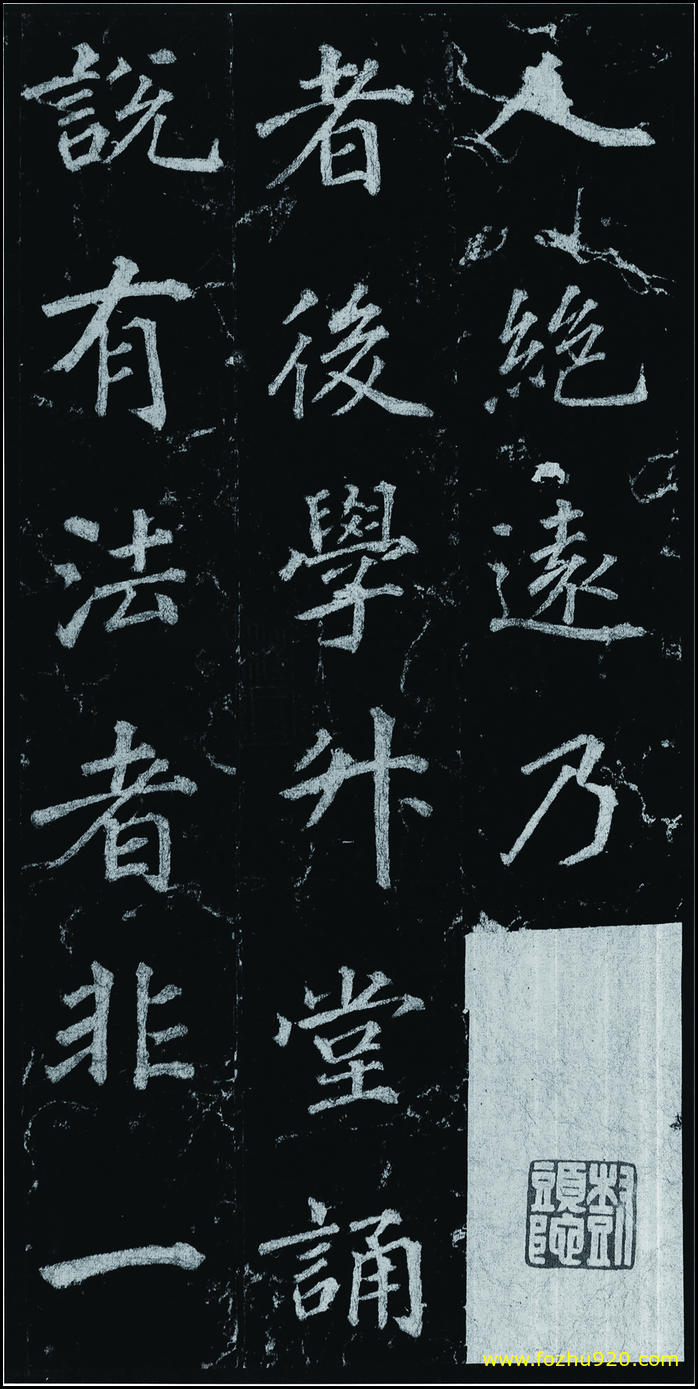 人絕遠乃
者後學升堂誦
說有法者非一
www.fozhu920.com